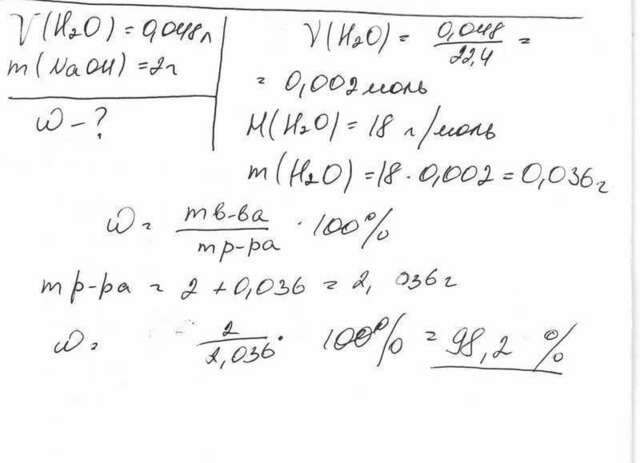 V(H₂O) = 0,048л
m(NaOH) = 2г
ω - ?
ν(H₂O) = 0,048/22,4 =
= 0,002 моль
M(H₂O) = 18 г/моль
m(H₂O) = 18 · 0,002 = 0,036г
ω = mв-ва/mр-ра · 100%
mр-ра = 2 + 0,036 = 2,036г
ω = 2/2,036 · 100% = 98,2 %